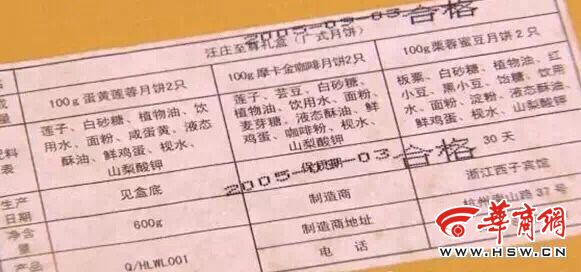 2005-09-03 合格
汪庄至尊礼盒（广式月饼）
100g 蛋黄莲蓉月饼2只
100g 摩卡金咖啡月饼2只
100g 栗蓉蜜豆月饼2只
料
表
莲子、白砂糖、植物油、饮
用水、面粉、咸蛋黄、液态
酥油、鲜鸡蛋、枧水、
山梨酸钾
莲子、芸豆、白砂糖、
植物油、饮用水、面粉、
麦芽糖、液态酥油、鲜
鸡蛋、咖啡粉、枧水、
山梨酸钾
板栗、白砂糖、植物油、红
小豆、黑小豆、饴糖、饮用
水、面粉、淀粉、液态酥
油、鲜鸡蛋、枧水、
山梨酸钾
2005-09-03 合格
生产
日期
见盒底
保质期
30 天
净含
量
600g
制造商
浙江西子宾馆
产品
Q/HLWL001
制造商地址
杭州南山路 37 号
电 话
华商网
WWW.HSW.CN